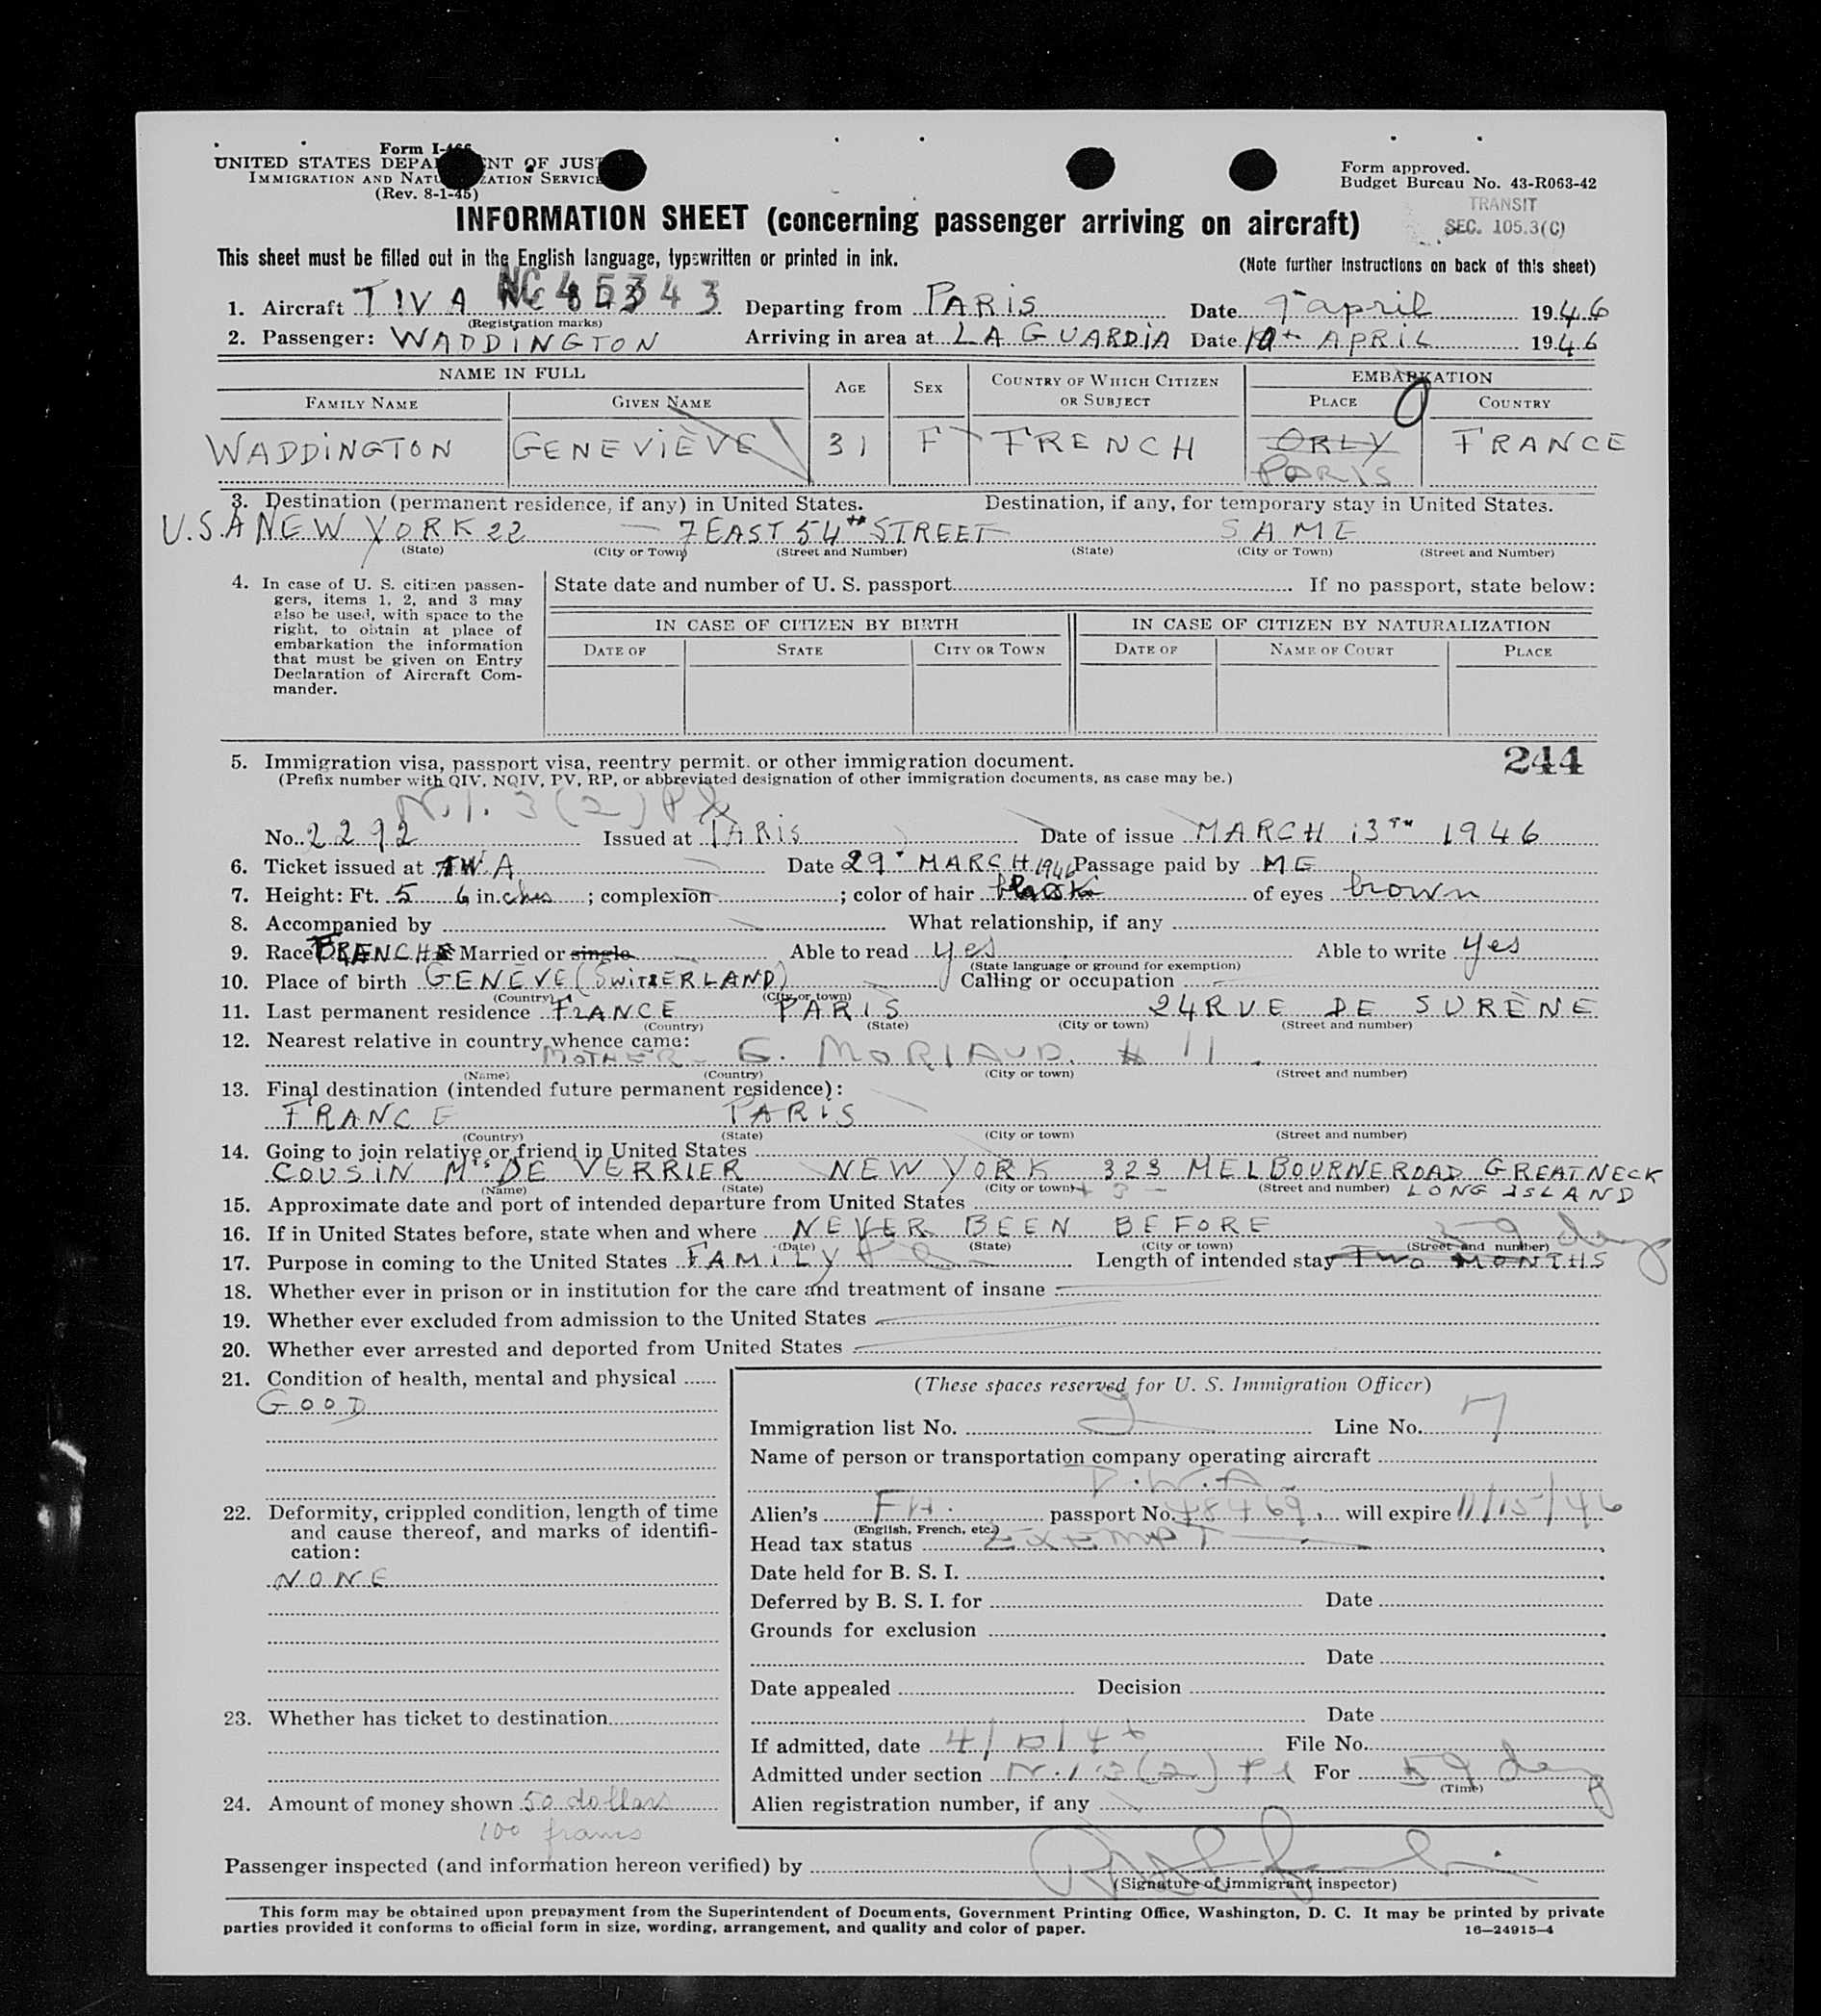 Form I-466
UNITED STATES DEPA NT OF JUST
IMMIGRATION AND NATU ZATION SERVICE
(Rev. 8-1-45)
Form approved.
Budget Bureau No. 43-R063-42
TRANSIT
SEC. 105.3(C)
INFORMATION SHEET (concerning passenger arriving on aircraft)
This sheet must be filled out in the English language, typewritten or printed in ink.
(Note further instructions on back of this sheet)
1. Aircraft TWA NC 45343 Departing from PARIS Date 9 april 1946
(Registration marks)
2. Passenger: WADDINGTON Arriving in area at LA GUARDIA Date 10th APRIL 1946
NAME IN FULL AGE SEX COUNTRY OF WHICH CITIZEN OR SUBJECT EMBARKATION
FAMILY NAME GIVEN NAME PLACE COUNTRY
WADDINGTON GENEVIÈVE 31 F FRENCH ORLY FRANCE
PARIS
3. Destination (permanent residence, if any) in United States. Destination, if any, for temporary stay in United States.
U.S.A NEW YORK 22 — 7 EAST 54th STREET SAME
(State) (City or Town) (Street and Number) (State) (City or Town) (Street and Number)
4. In case of U. S. citizen passen-
gers, items 1, 2, and 3 may
also be used, with space to the
right, to obtain at place of
embarkation the information
that must be given on Entry
Declaration of Aircraft Com-
mander.
State date and number of U. S. passport If no passport, state below:
IN CASE OF CITIZEN BY BIRTH IN CASE OF CITIZEN BY NATURALIZATION
DATE OF STATE CITY OR TOWN DATE OF NAME OF COURT PLACE
244
5. Immigration visa, passport visa, reentry permit, or other immigration document.
(Prefix number with QIV, NQIV, PV, RP, or abbreviated designation of other immigration documents, as case may be.)
N.I. 3(2) Pl
No. 2292 Issued at PARIS Date of issue MARCH 13TH 1946
6. Ticket issued at TWA Date 29 MARCH 1946 Passage paid by ME
7. Height: Ft. 5 6 in.ches ; complexion ; color of hair black of eyes brown
8. Accompanied by What relationship, if any
9. Race FRENCH Married or single Able to read yes Able to write yes
(State language or ground for exemption)
10. Place of birth GENEVE (SWITZERLAND) Calling or occupation
(Country) (City or town)
11. Last permanent residence FRANCE PARIS 24 RUE DE SURÈNE
(Country) (State) (City or town) (Street and number)
12. Nearest relative in country whence came:
MOTHER - G. MORIAUD. # 11
(Name) (Country) (City or town) (Street and number)
13. Final destination (intended future permanent residence):
FRANCE PARIS
(Country) (State) (City or town) (Street and number)
14. Going to join relative or friend in United States
COUSIN Mrs DE VERRIER NEW YORK 323 MELBOURNE ROAD GREAT NECK
(Name) (State) (City or town) (Street and number) LONG ISLAND
15. Approximate date and port of intended departure from United States
16. If in United States before, state when and where NEVER BEEN BEFORE
(Date) (State) (City or town) (Street and number)
59 days
17. Purpose in coming to the United States FAMILY Length of intended stay TWO MONTHS
18. Whether ever in prison or in institution for the care and treatment of insane
19. Whether ever excluded from admission to the United States
20. Whether ever arrested and deported from United States
21. Condition of health, mental and physical
GOOD
22. Deformity, crippled condition, length of time
and cause thereof, and marks of identifi-
cation:
NONE
23. Whether has ticket to destination
24. Amount of money shown 50 dollars
100 francs
(These spaces reserved for U. S. Immigration Officer)
Immigration list No. Line No. 7
Name of person or transportation company operating aircraft
T.W.A.
Alien's FH. passport No. 48469, will expire 11/15/46
(English, French, etc.)
Head tax status EXEMPT
Date held for B. S. I.
Deferred by B. S. I. for Date
Grounds for exclusion
Date
Date appealed Decision
Date
If admitted, date 4/10/46 File No.
Admitted under section N.I 3(2) Pl For 59 days
(Time)
Alien registration number, if any
Passenger inspected (and information hereon verified) by
(Signature of immigrant inspector)
This form may be obtained upon prepayment from the Superintendent of Documents, Government Printing Office, Washington, D. C. It may be printed by private
parties provided it conforms to official form in size, wording, arrangement, and quality and color of paper. 16—24915-4